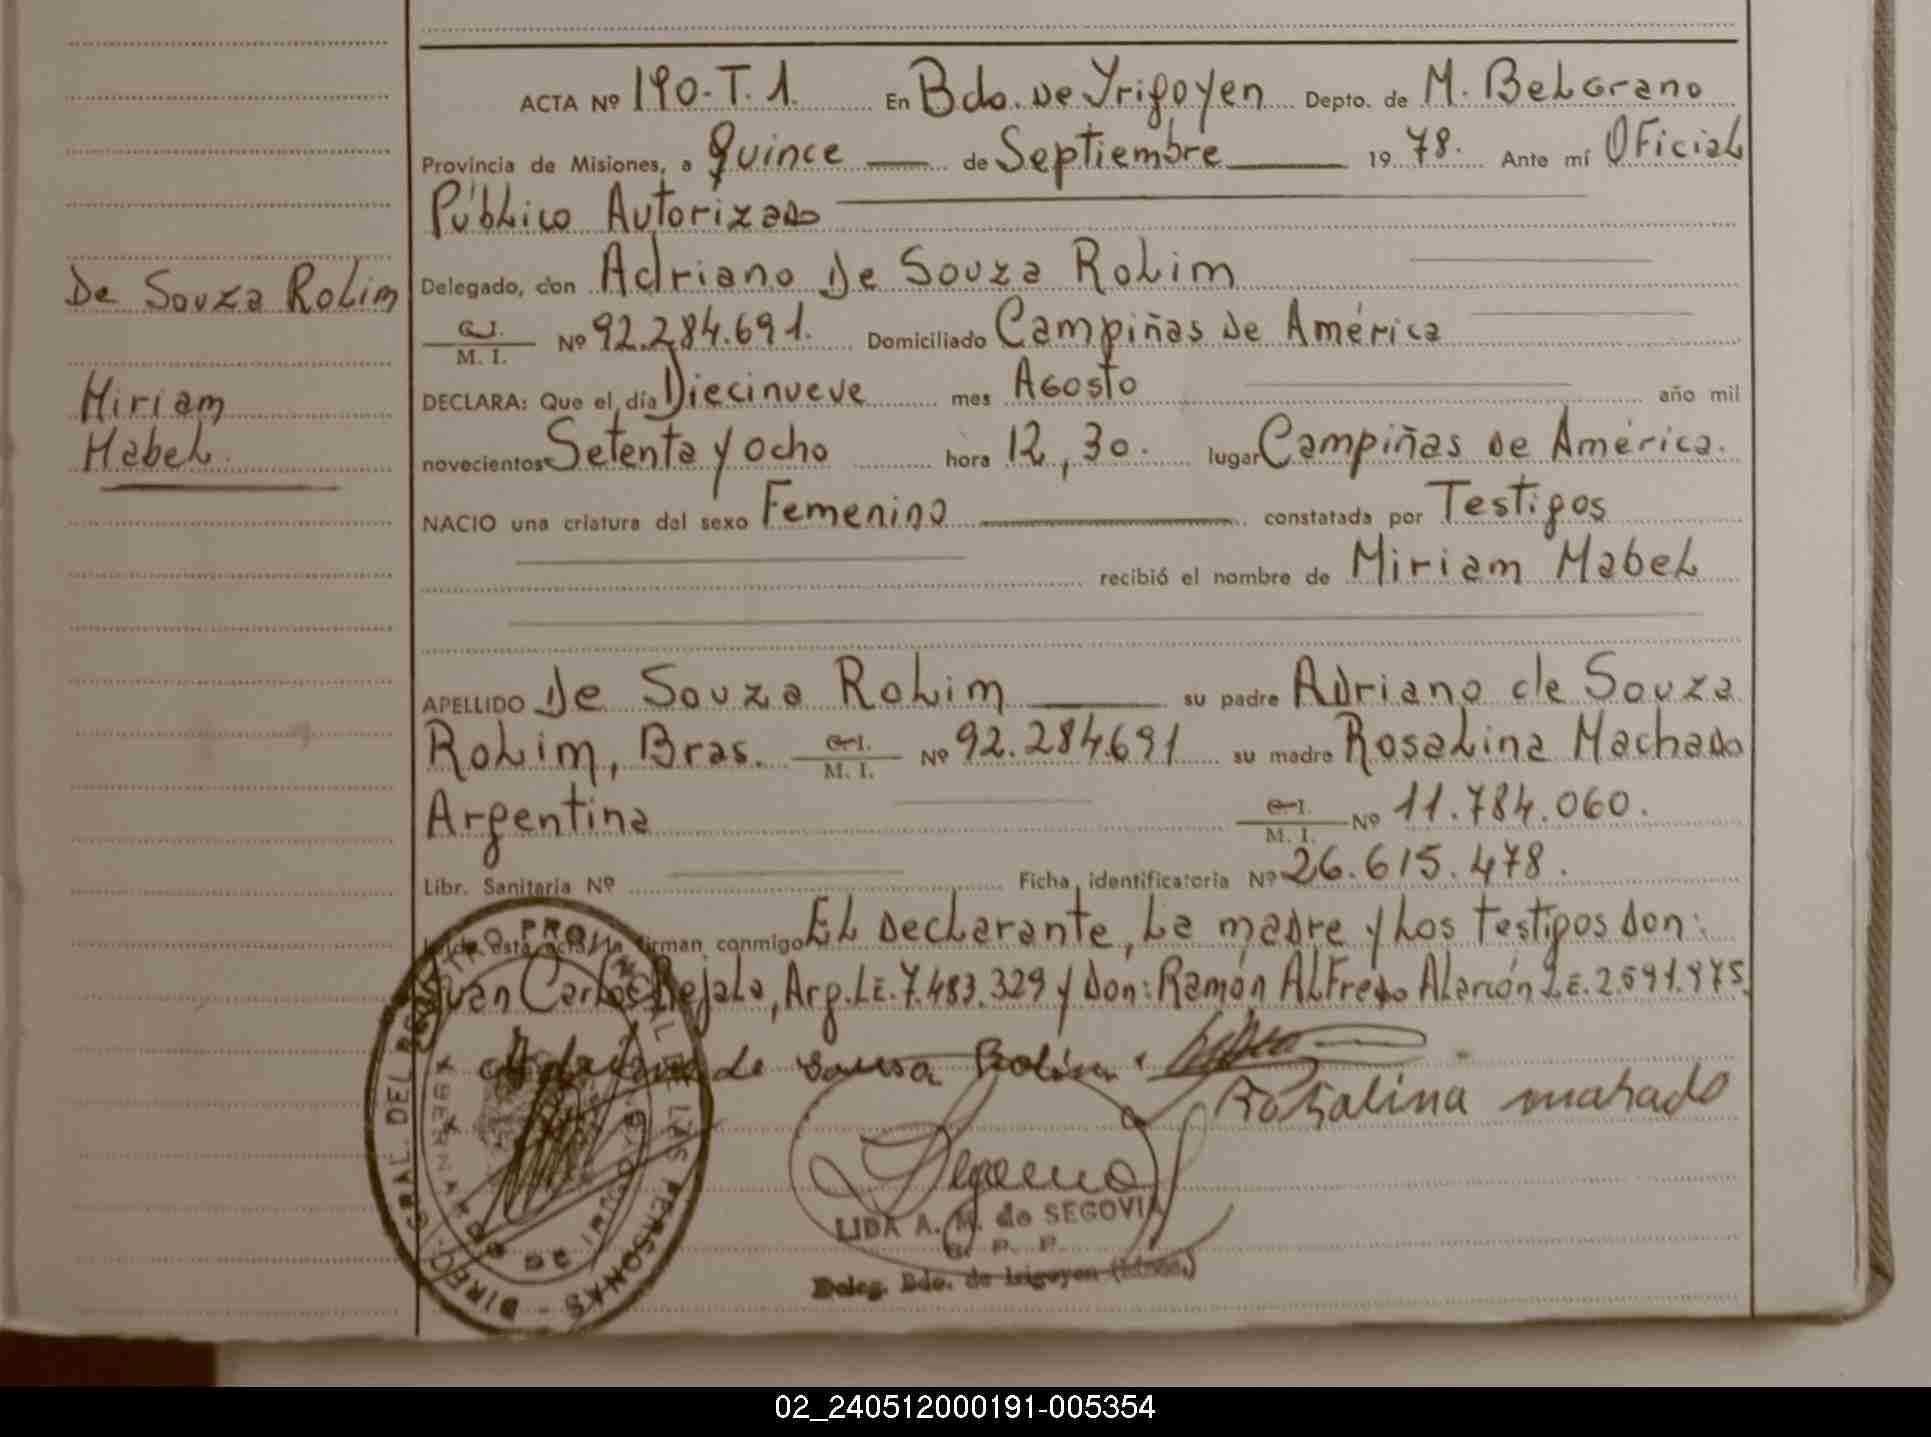 ACTA Nº 190-T.1. En Bdo. de Yrigoyen Depto. de M. Belgrano
Provincia de Misiones, a Quince de Septiembre 1978. Ante mí Oficial
Público Autorizado
Delegado, don Adriano De Souza Rolim
De Souza Rolim
C.I. / M. I. Nº 92.284.691. Domiciliado Campiñas de América
Miriam
Mabel.
DECLARA: Que el día Diecinueve mes Agosto año mil
novecientos Setenta y ocho hora 12,30. lugar Campiñas de América.
NACIO una criatura del sexo Femenino constatada por Testigos
recibió el nombre de Miriam Mabel
APELLIDO De Souza Rolim su padre Adriano de Souza
Rolim, Bras. C.I. / M. I. Nº 92.284.691 su madre Rosalina Machado
Argentina C.I. / M. I. Nº 11.784.060.
Libr. Sanitaria Nº Ficha identificatoria Nº 26.615.478.
Leída esta acta, la firman conmigo El declarante, La madre y Los testigos don:
Juan Carlos Rejala, Arg. L.E. 7.483.329 y Don: Ramón Alfredo Alarcón L.E. 2.591.975.
de Sousa Rolim
Rosalina mahado
LIDA A. M. de SEGOVIA
Deleg. Bdo. de Irigoyen
DIREC. GRAL. DEL REGISTRO PROVINCIAL DE LAS PERSONAS
02_240512000191-005354